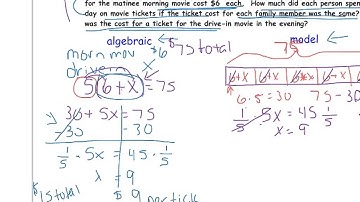 for the matinee morning movie cost $6 each. How much did each person spen
day on movie tickets if the ticket cost for each family member was the same?
was the cost for a ticket for the drive-in movie in the evening?
algebraic
$75 total
model
morn mov 6
drivein x
75
5(6+x)=75
6+x
6·5=30 75-30
30+5x=75
-30 -30
1/5·5x=45·1/5
x=9
1/5·5x=45·1/5
x=9
$75 total
$9 per tick